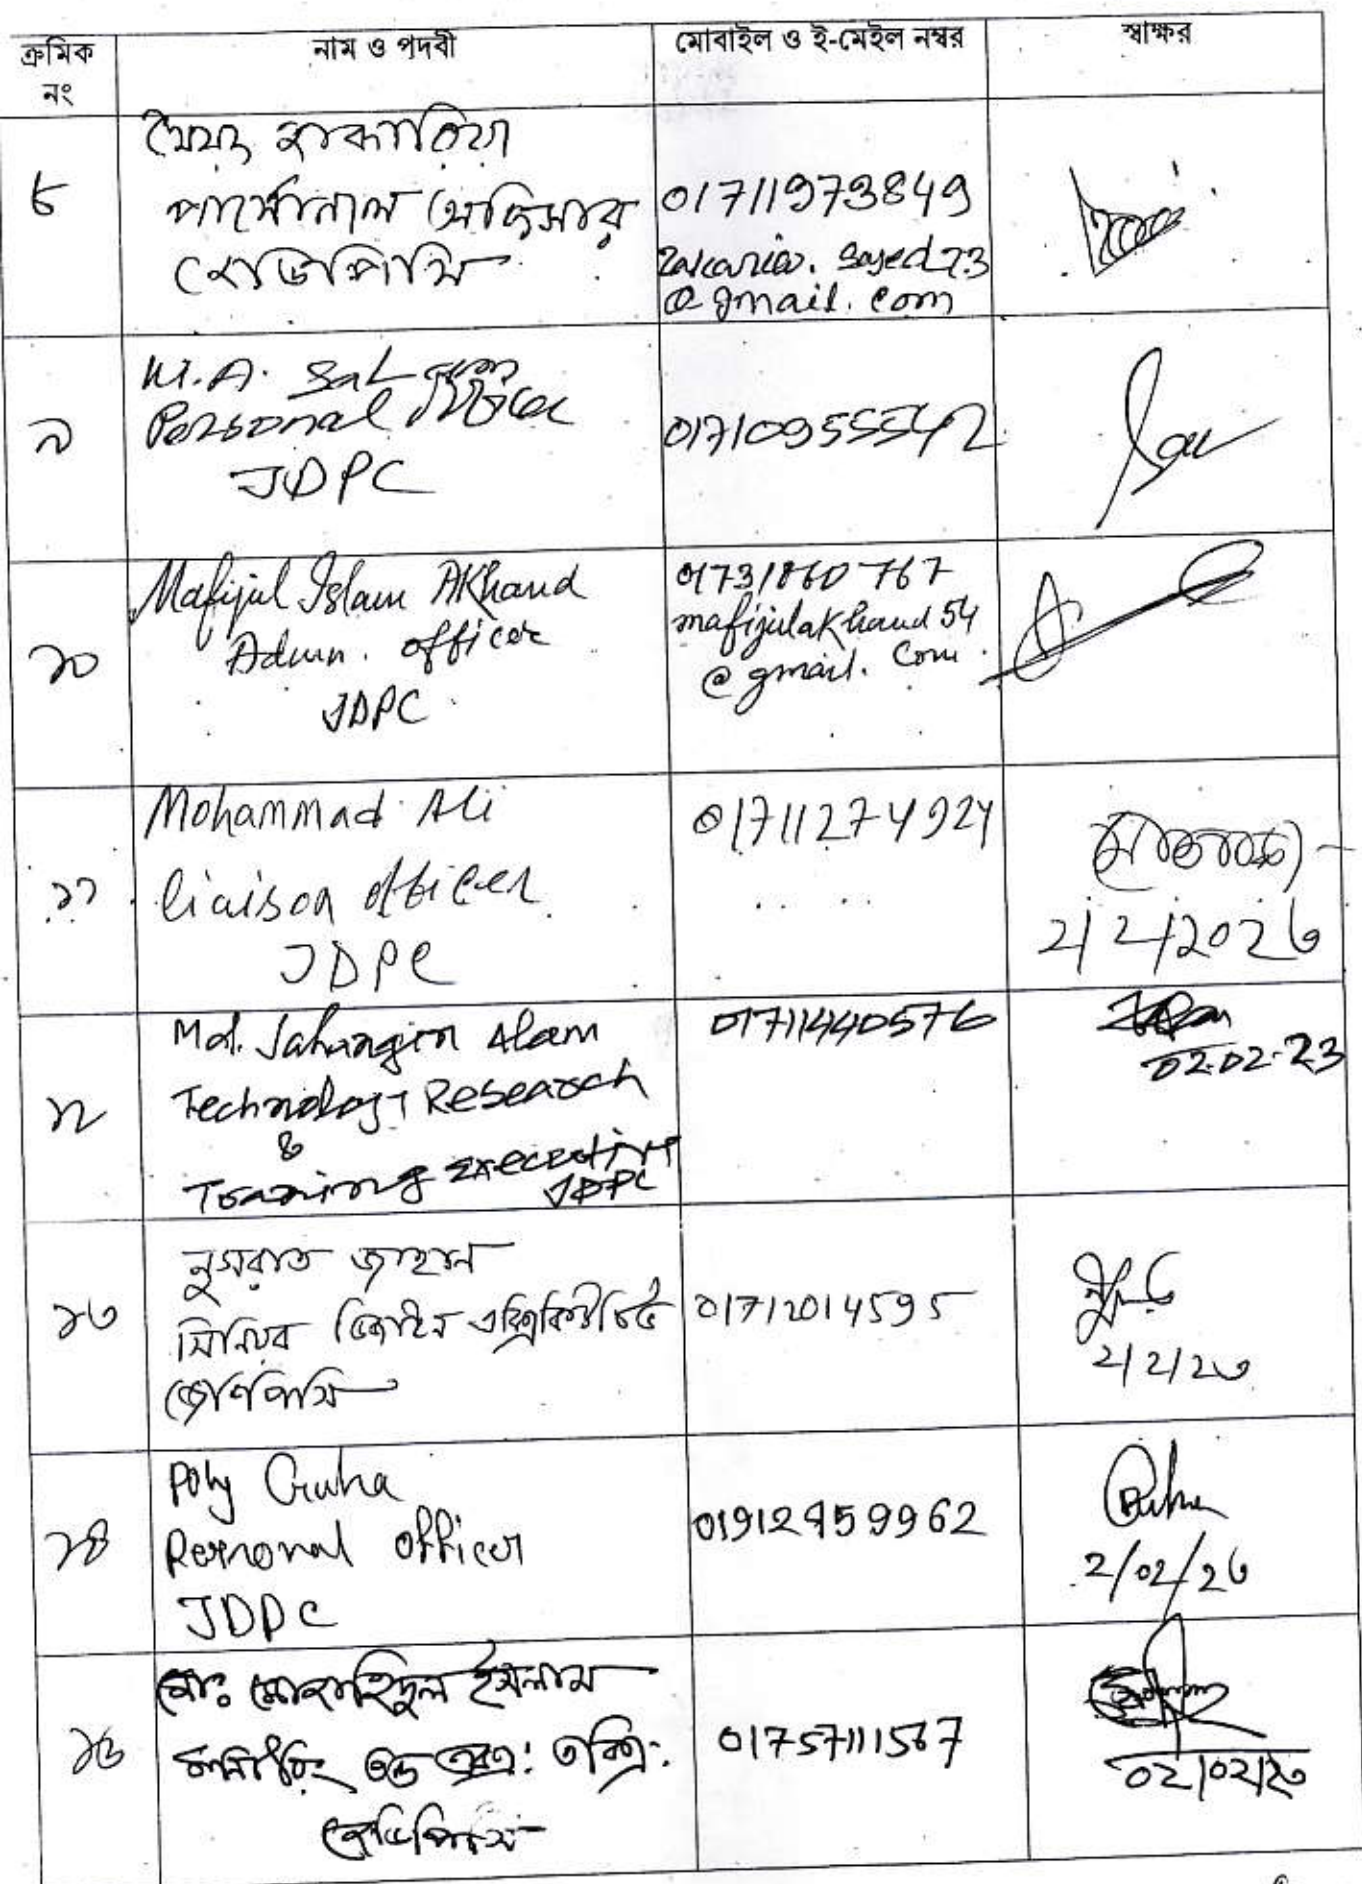 ক্রমিক নং
নাম ও পদবী
মোবাইল ও ই-মেইল নম্বর
স্বাক্ষর
৮
সৈয়দ জাকারিয়া
পার্সোনাল অফিসার
জেডিপিসি
01711973849
zakaria.sayed73
@gmail.com
৯
M.A. Salam
Personal Officer
JDPC
01710955542
১০
Mafijul Islam Akhand
Admn. officer
JDPC
01731860767
mafijulakhand54
@gmail.com
১১
Mohammad Ali
liaison officer
JDPC
01711274924
2/2/2023
১২
Md. Jahangir Alam
Technology Research
&
Training Executive
JDPC
01711440576
02.02.23
১৩
নুসরাত জাহান
সিনিয়র ডিজাইন এক্সিকিউটিভ
জেডিপিসি
01712014595
2/2/২৩
১৪
Poly Guha
Personal officer
JDPC
01912959962
2/02/2৩
১৫
মোঃ মোজাহিদুল ইসলাম
মনিটরিং এন্ড
জেডিপিসি
01757111567
০২/০২/২৩